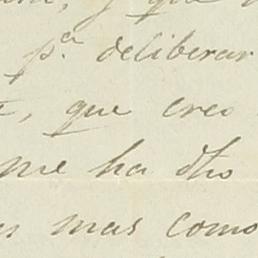 y que
p.ª deliberar
, que creo
me ha dho
mas como